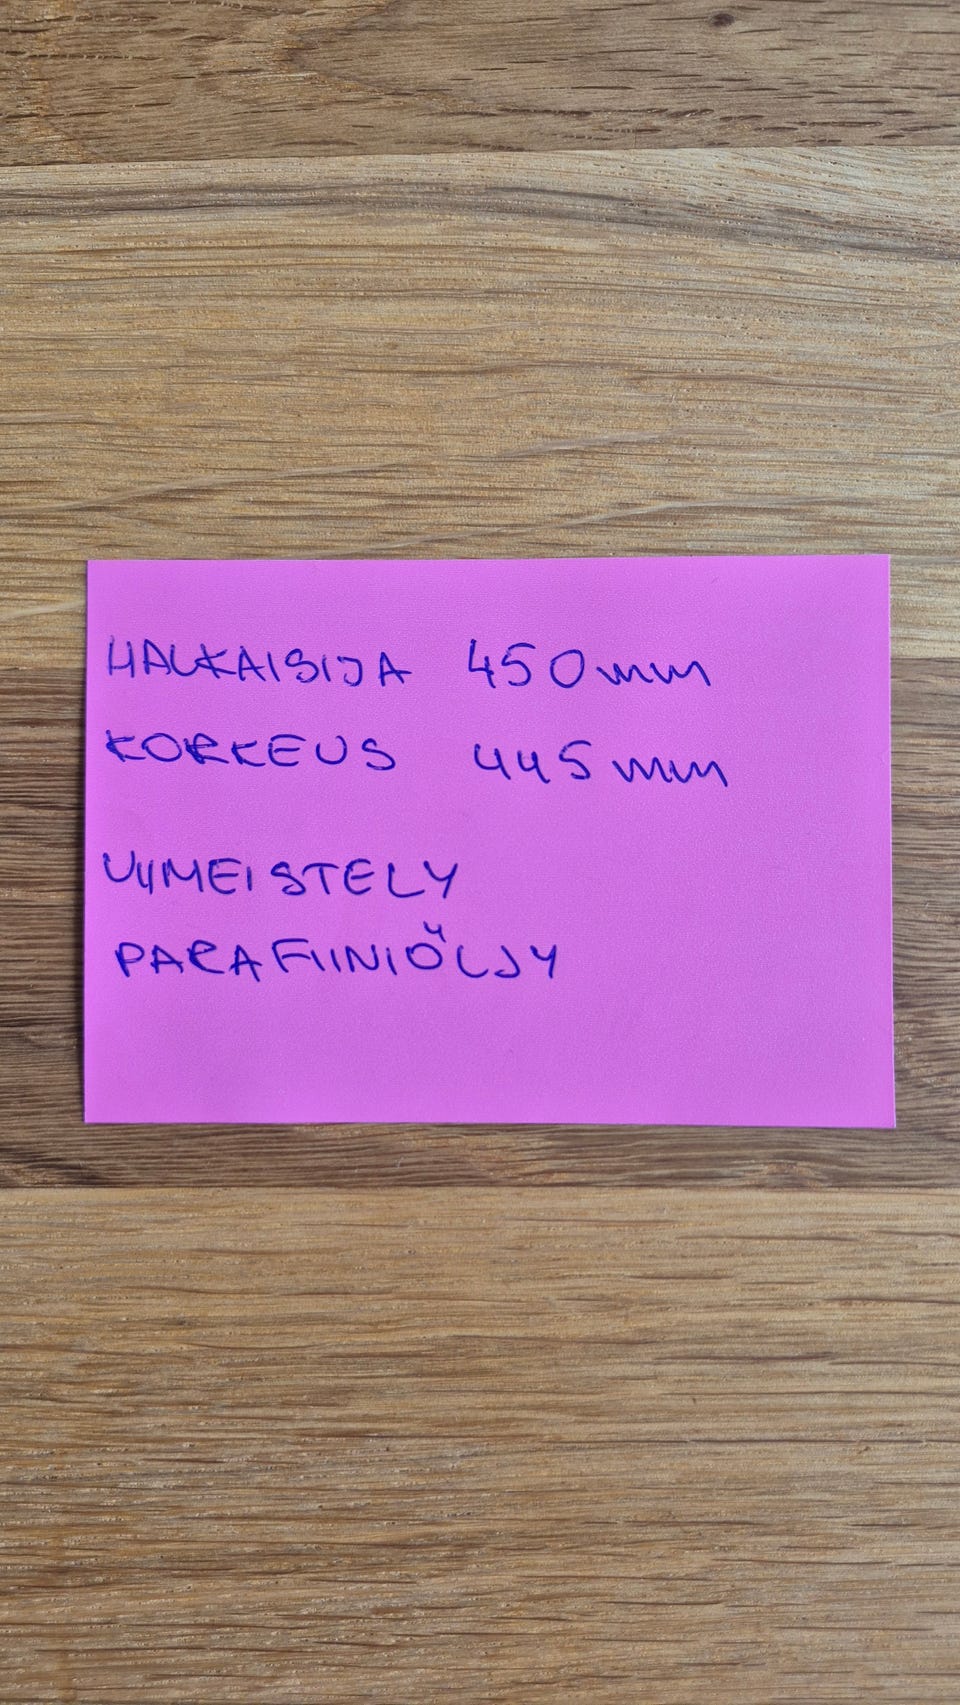 HALKAISIJA 450mm
KORKEUS 445mm
VIIMEISTELY
PARAFIINIÖLJY